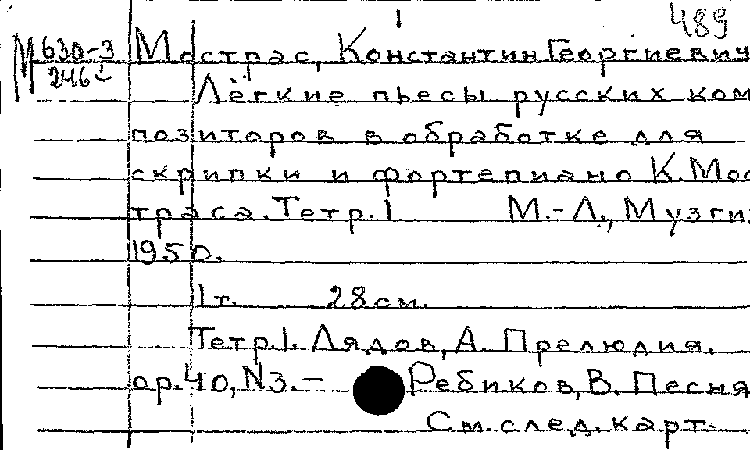 489
М 630-3 Мострас, Константин Георгиевич
Лёгкие пьесы русских ком
позиторов в обработке для
скрипки и фортепиано К. Мос
траса. Тетр. 1 М.-Л., Музгиз
1950.
1 т. 28 см.
Тетр. 1. Лядов, А. Прелюдия.
ор. 40, N3. — Ребиков, В. Песня
См. след. карт.